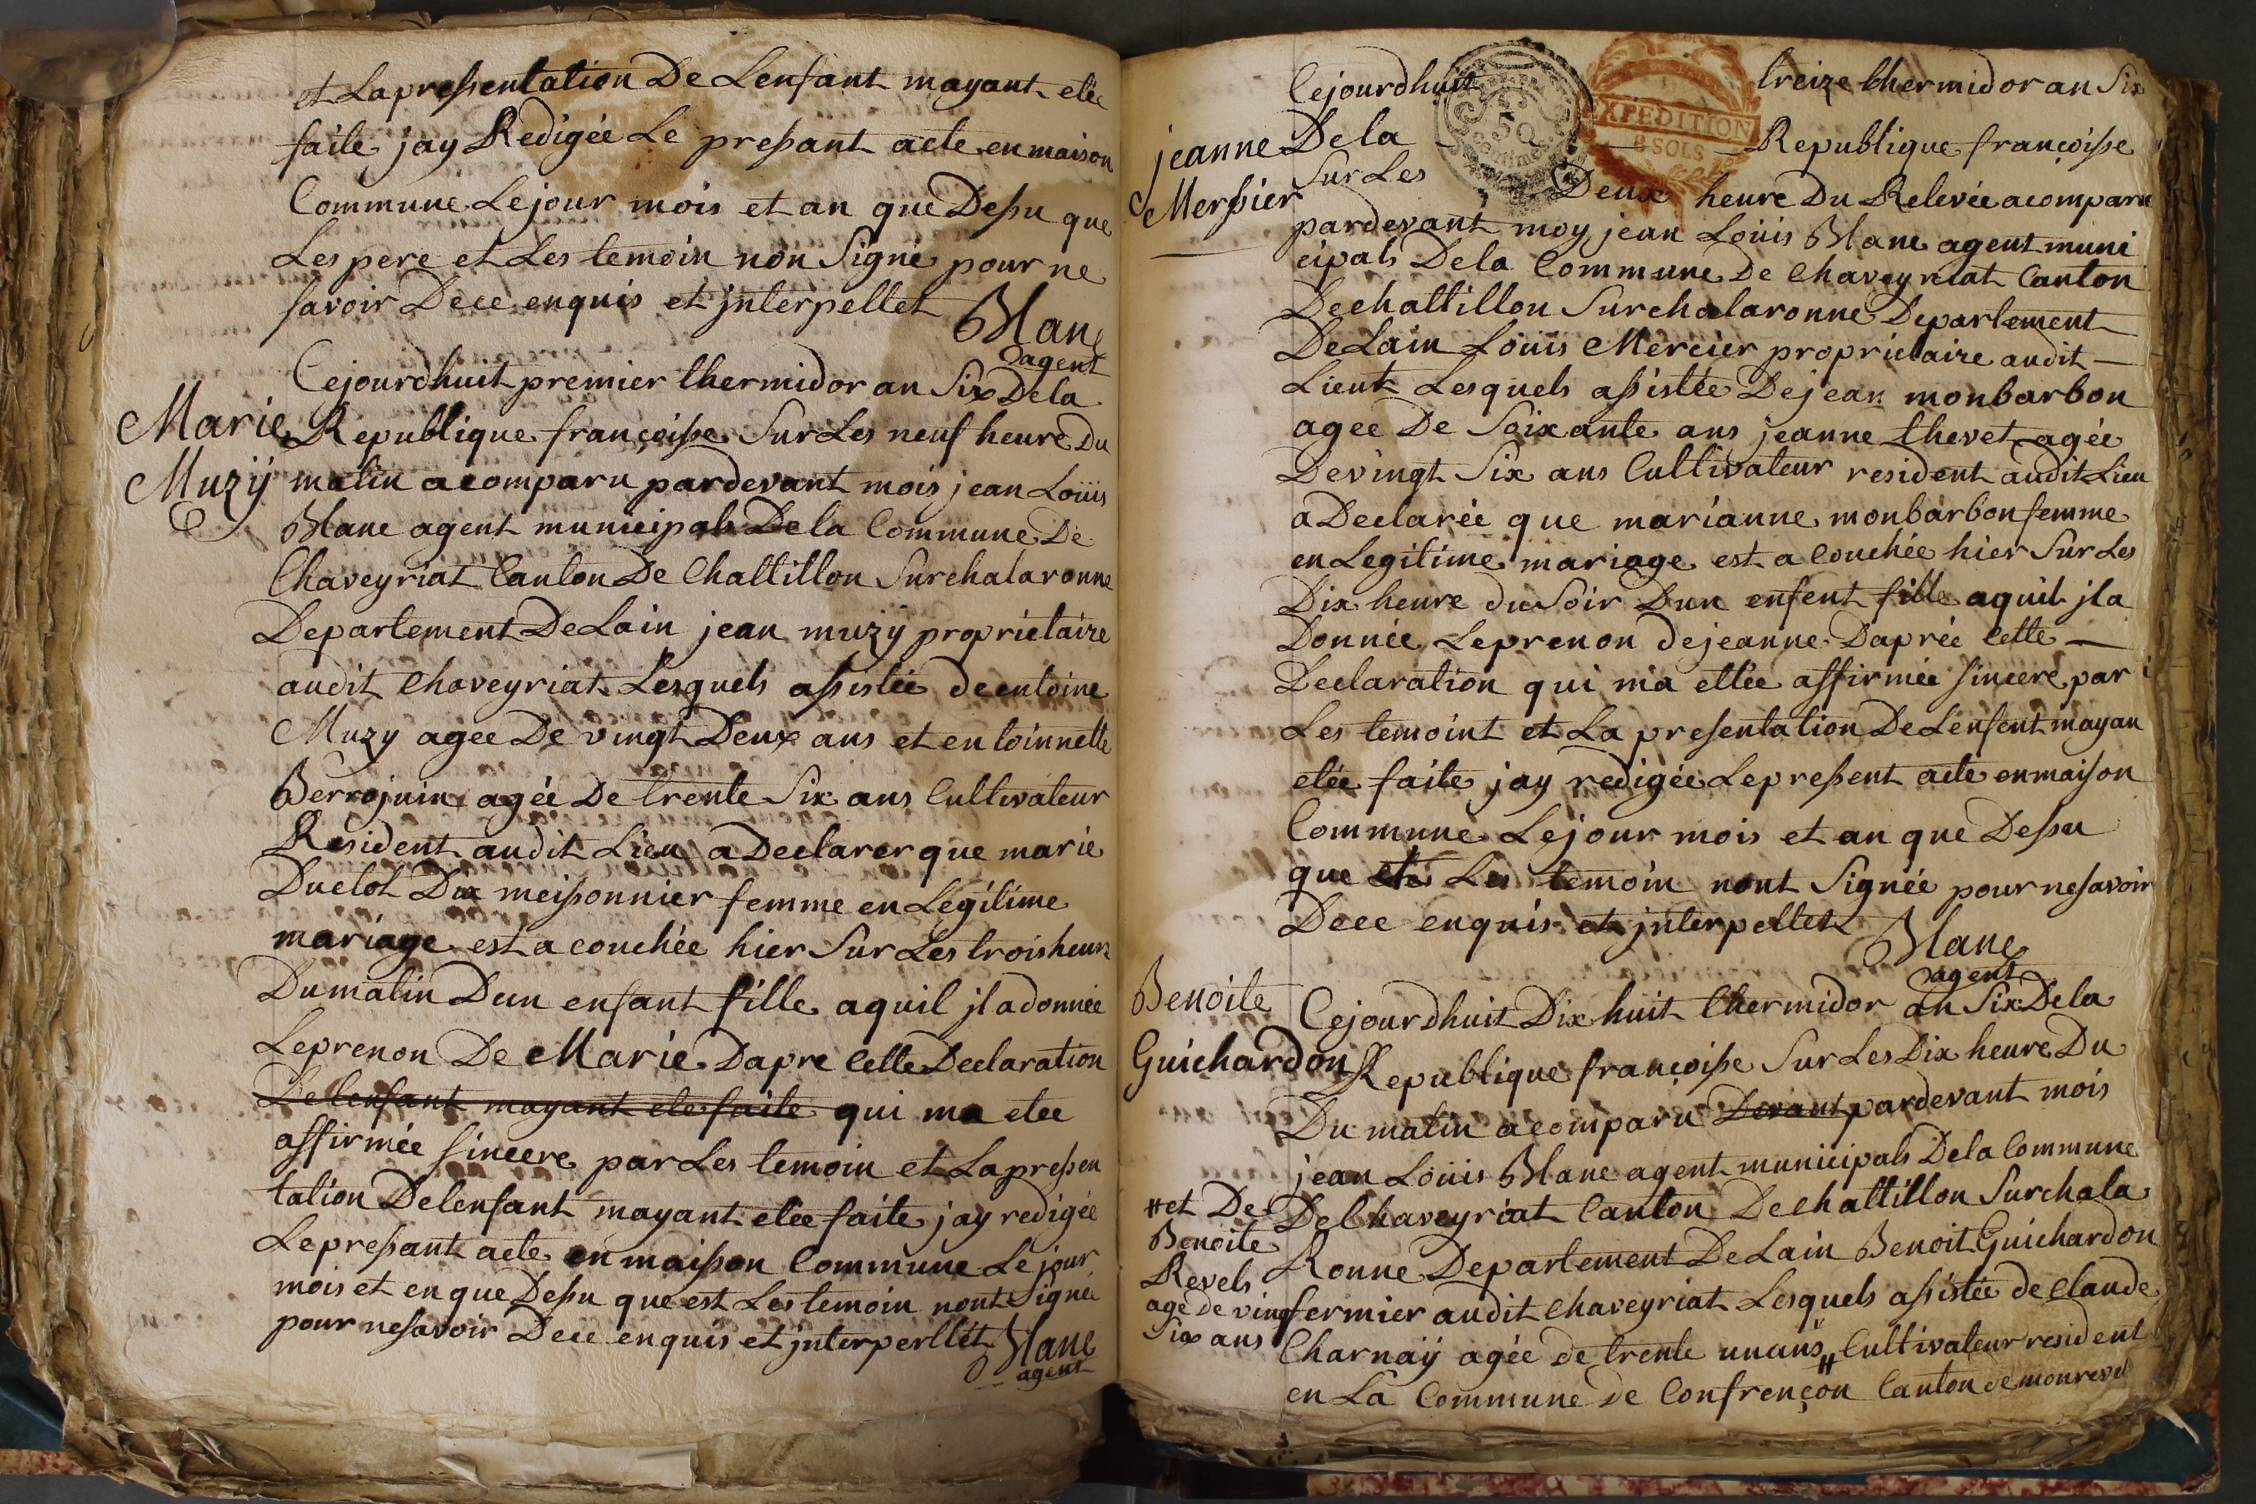 et La pressentation De Lenfant mayant etée
faite jay Redigée Le pressant acte en maison
Commune Le jour mois et an que Dessu que
Les pere et Les temoin non Signé pour ne
savoir De ce enquis et jnterpellet
Blanc
agent
Marie
Muzÿ
Cejourdhuit premier thermidor an Six De la
Republique françoisse Sur Les neuf heure Du
matin a comparu pardevant mois jean Loüis
Blanc agent municipals De la Commune De
Chaveyriat Canton De Chattillon Surchalaronne
Departement De Lain jean muzÿ proprietaire
audit Chaveyriat Lesquels assistée de entoine
Muzy agee De vingt Deux ans et entoinnette
Berrojuin agée De trente Six ans Cultivateur
Resident audit Lieu a Declarer que marie
Duclot Dix meissonnier femme en Legitime
mariage est a couchée hier Sur Les trois heure
Du matin Dun enfant fille aquil jl a donnée
Le prenon De Marie Dapre Cette Declaration
De lenfant mayant ete faite qui ma etee
affirmée sincere par Les temoin et La pressen
tation De lenfant mayant etée faite jay redigée
Le pressant acte en maisson Commune Le jour
mois et en que Dessu que est Les temoin nont Signé
pour ne savoir De ce enquis et jnterperllét Blanc
agent
jeanne
Merssier
Cejourdhuit treize thermidor an Six
De la Republique françoisse
Sur Les Deux heure Du Relevée a comparu
50
XPEDITION
8 SOLS
pardevant moy jean Loüis Blanc agent muni
cipals De la Commune De Chaveyriat Canton
De chattillon Surchalaronne Departement
De Lain Loüis Mercier proprietaire audit
Lieut Lesquels assistée De jean monbarbon
agee De Soixante ans jeanne thevet agée
De vingt Six ans Cultivateur resident audit Lieu
a Declarée que marianne monbarbon femme
en Legitime mariage est a Couchée hier Sur Les
Dix heure du Soir Dun enfent fille aquil jl a
Donnée Le prenon de jeanne Daprée Cette
Declaration qui ma ettée affirmée sincere par
Les temoint et La presentation De Lenfent mayan
etée faite jay redigée Le pressent acte en maison
Commune Le jour mois et an que Dessu
que ete Les temoin nont Signée pour ne savoir
De ce enquis et jnterpellet
Blanc
agent
Benoite
Guichardon
Cejourdhuit Dix huit thermidor an Six De la
Republique françoisse Sur Les Dix heure Du
Du matin a comparu Devant pardevant mois
jean Loüis Blanc agent municipals De la Commune
De Chaveyriat Canton De chattillon Surchala
Ronne Departement De Lain Benoit Guichardon
fermier audit Chaveyriat Lesquels assistée de Claude
Charnaÿ agée de trente un ans # Cultivateur resident
en La Commune de Confrençon Canton de monrevel
# et De
Benoite
Revels
age de ving
Six ans